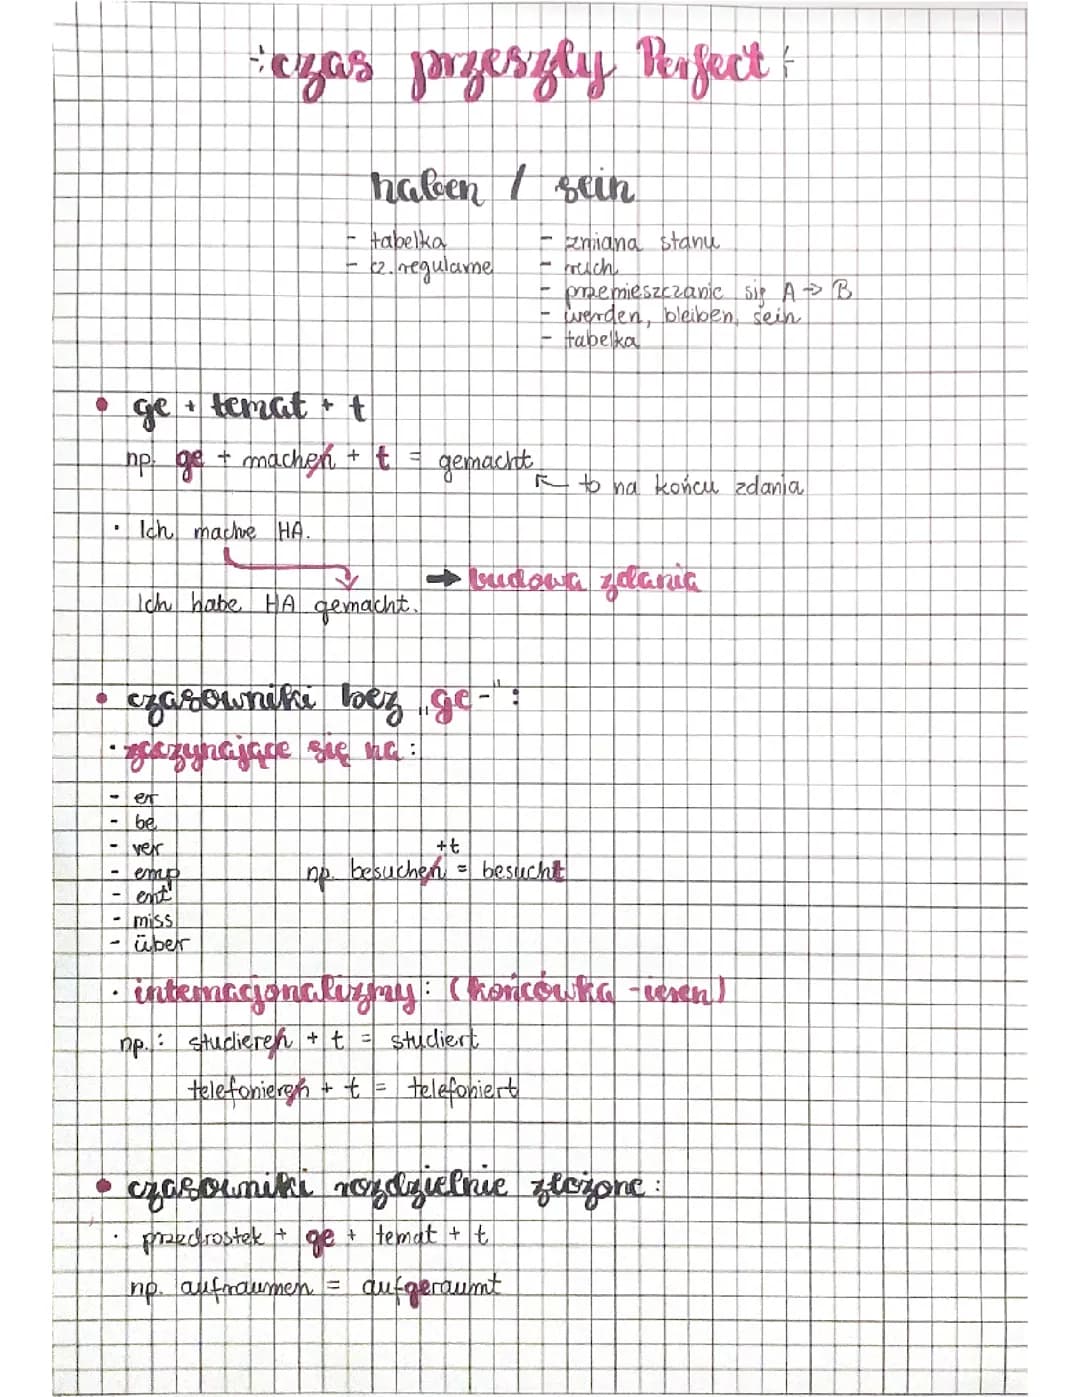 czas przeszły Perfect
haben / sein
- tabelka
- cz. regularne
- zmiana stanu
- ruch
- przemieszczanie się A → B
- werden, bleiben, sein
- tabelka
• ge + temat + t
np. ge + machen + t = gemacht
↖ to na końcu zdania
· Ich mache HA.
→ budowa zdania
Ich habe HA gemacht.
• czasowniki bez „ge-":
· zaczynające się na:
- er
- be
- ver
- emp
- ent
- miss
- über
+t
np. besuchen = besucht
· internacjonalizmy: (końcówka -ieren)
np.: studieren + t = studiert
telefonieren + t = telefoniert
• czasowniki rozdzielnie złożone:
· przedrostek + ge + temat + t
np. aufraumen = aufgeraumt